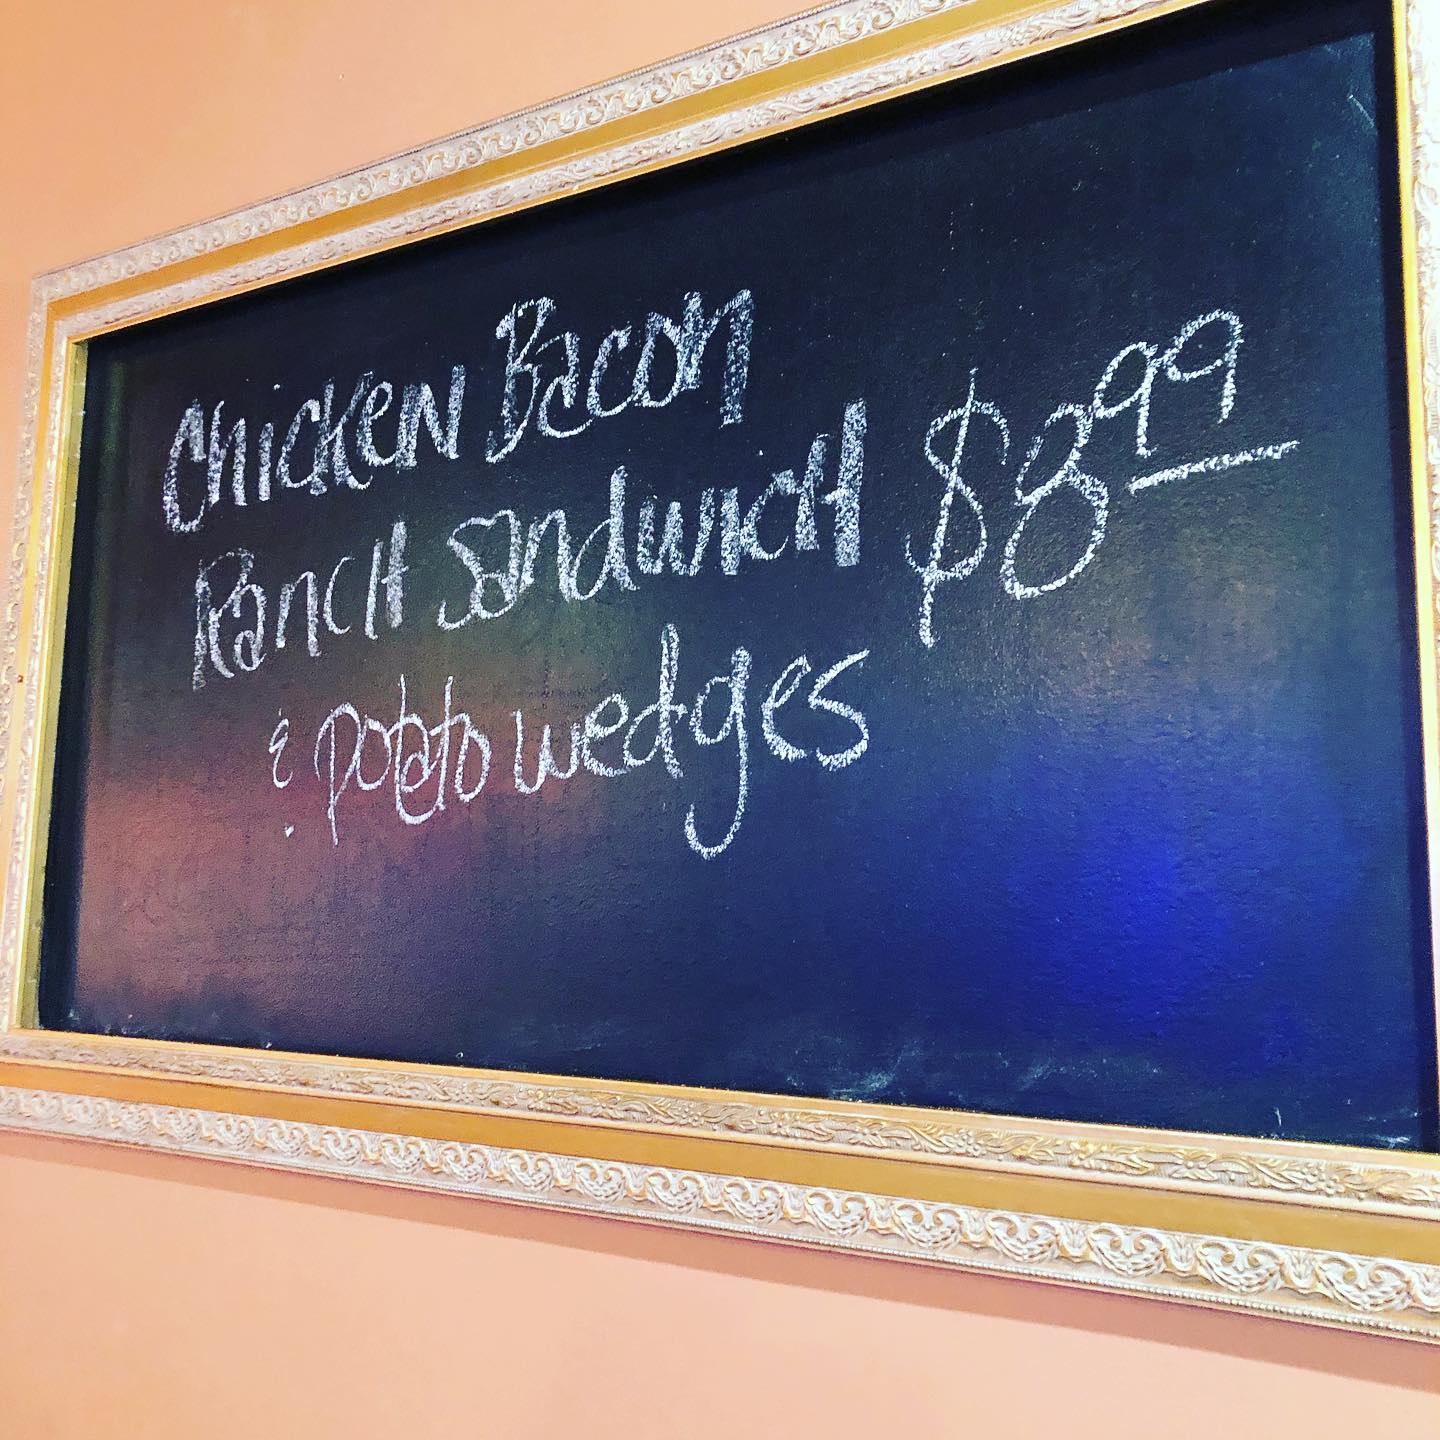 Chicken Bacon
Ranch Sandwich $8.99
& potato wedges